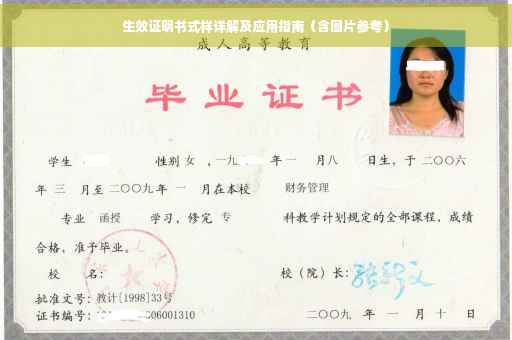 生效证明书式样详解及应用指南（含图片参考）
成人高等教育
毕业证书
学生 性别 女 ，一九 年 一 月八 日生，于 二〇〇六
年 三 月至 二〇〇九 年 一 月在本校 财务管理
专业 函授 学习，修完 专 科教学计划规定的全部课程，成绩
合格，准予毕业。
校 名： 校（院）长：
批准文号：教计[1998]33号
证书编号： 06001310 二〇〇九 年 一 月 十 日